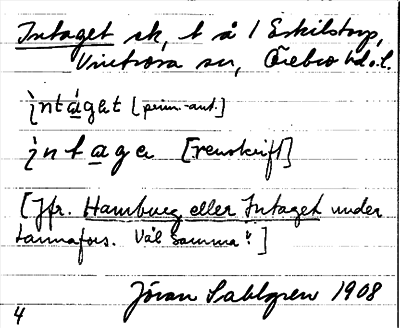 Intaget sk, t å 1 Eskilstorp,
Vintrosa sn, Örebro hd o. l.
ìntáget [prim.-ant.]
ìntage [renskrift]
[Jfr. Hamburg eller Intaget under
Lannafors. Väl samma?]
Jöran Sahlgren 1908
4